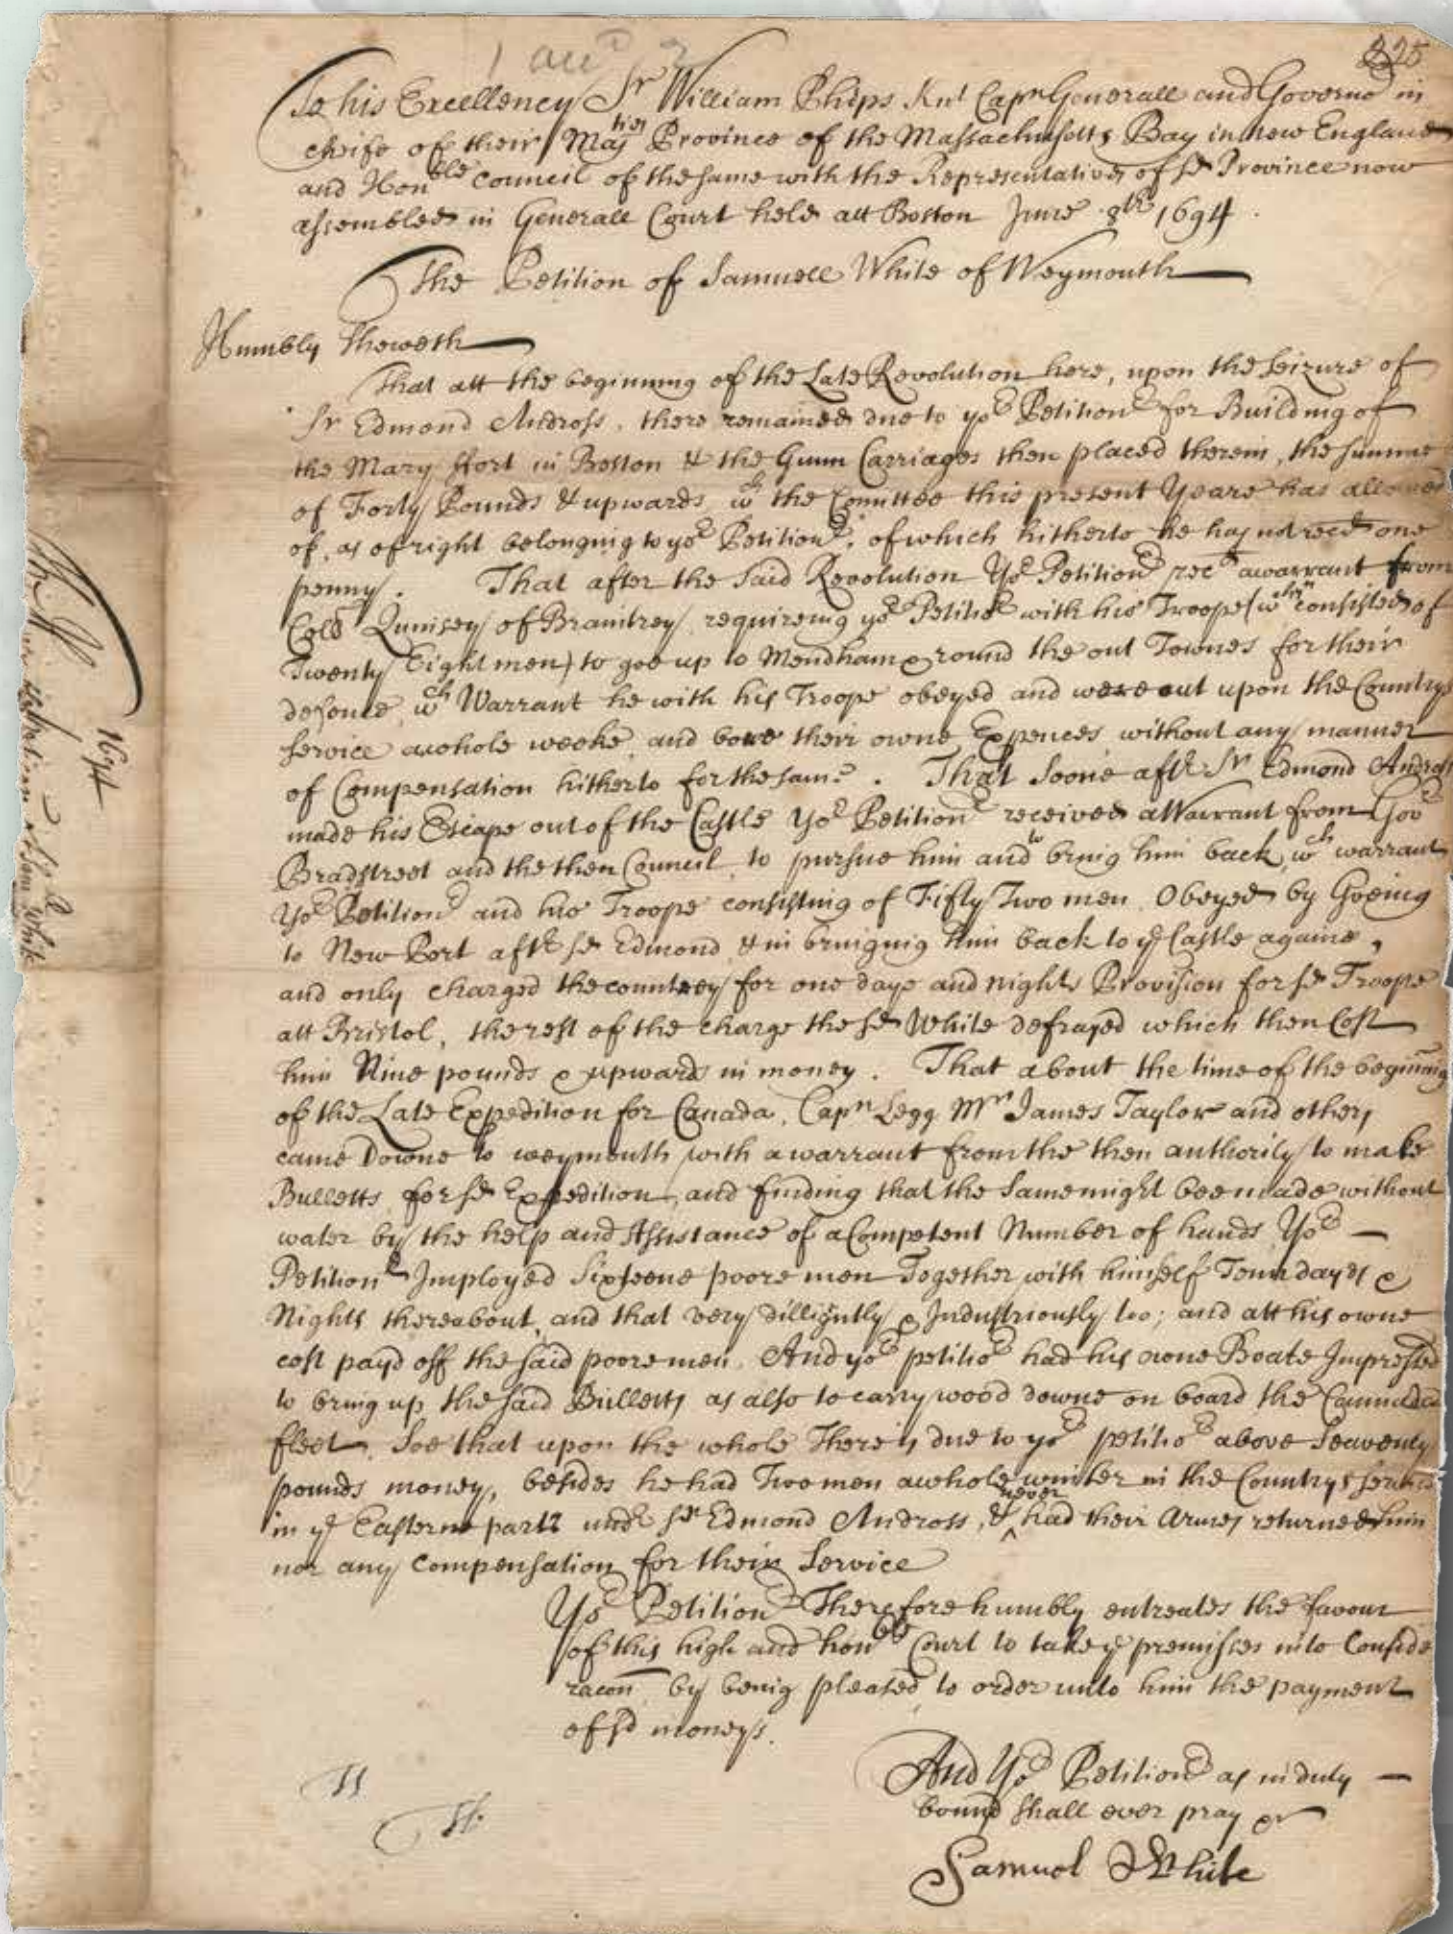 225
To his Excellency Sr William Phips Knt Capn Generall and Governor in
cheife of their Majties Province of the Massachusetts Bay in new England
and Honble Council of the same with the Representatives of sd Province now
assembled in Generall Court held att Boston June 8th 1694.
The Petition of Samuell White of Weymouth
Humbly Sheweth
That att the beginning of the Late Revolution here, upon the Seizure of
Sr Edmond Andross, there remained due to yor Petitionr for Building of
the Mary ffort in Boston & the Gunn Carriages then placed therein, the summe
of Forty Pounds & upwards wch the Comittee this present Yeare has allowed
of, as of right belonging to yor Petitionr, of which hitherto he has not recd one
penny. That after the said Revolution Yor Petitionr recd a warrant from
Coll Quinsey of Braintrey requireing yor Petitior with his Troope (wch then consisted of
Twenty Eight men) to goe up to Mendham & round the out Townes for their
defence, wch Warrant he with his Troope obeyed and were out upon the Countrys
service a whole weeke, and bore their owne Expences without any manner
of Compensation hitherto for the same. That Soone aftr Sr Edmond Andross
made his Escape out of the Castle Yor Petitionr received a Warrant from Govr
Bradstreet and the then Council, to pursue him and to bring him back, wch warrant
Yor Petitionr and his Troope consisting of Fifty Two men Obeyed by Goeing
to New Port aftr sd Edmond & in bringing him back to ye Castle againe,
and only charged the countrey for one days and nights Provision for sd Troope
att Bristol, the rest of the charge the sd White defrayed which then Cost
him Nine pounds & upwards in money. That about the time of the begining
of the Late Expedition for Canada, Capn Legg Mr James Taylor and others
came Downe to weymouth with a warrant from the then authority to make
Bulletts for sd Expedition, and finding that the Same might bee made without
water by the help and Assistance of a Competent Number of hands Yor —
Petitionr Imployed Sixteene poore men Together with himself Tenn dayes &
Nights thereabout, and that very dilligently & Industriously too; and att his owne
cost payd off the said poore men. And yor petitior had his owne Boate Impressed
to bring up the said Bulletts as also to carry wood downe on board the Cannada
fleet. Soe that upon the whole There is due to yor petitior above Seaventy
pounds money, besides he had Two men a whole winter in the Countrys Service
in ye Easterne parts undr sd Edmond Andross, & never had their Armes returned him
nor any Compensation for their Service
Yor Petitionr Therefore humbly entreates the favour
of this high and honble Court to take ye premisses into Conside
racon by being pleased to order unto him the payment
of sd moneys.
And Yor Petitionr as in duty —
bound shall ever pray &c
Samuel White
1694